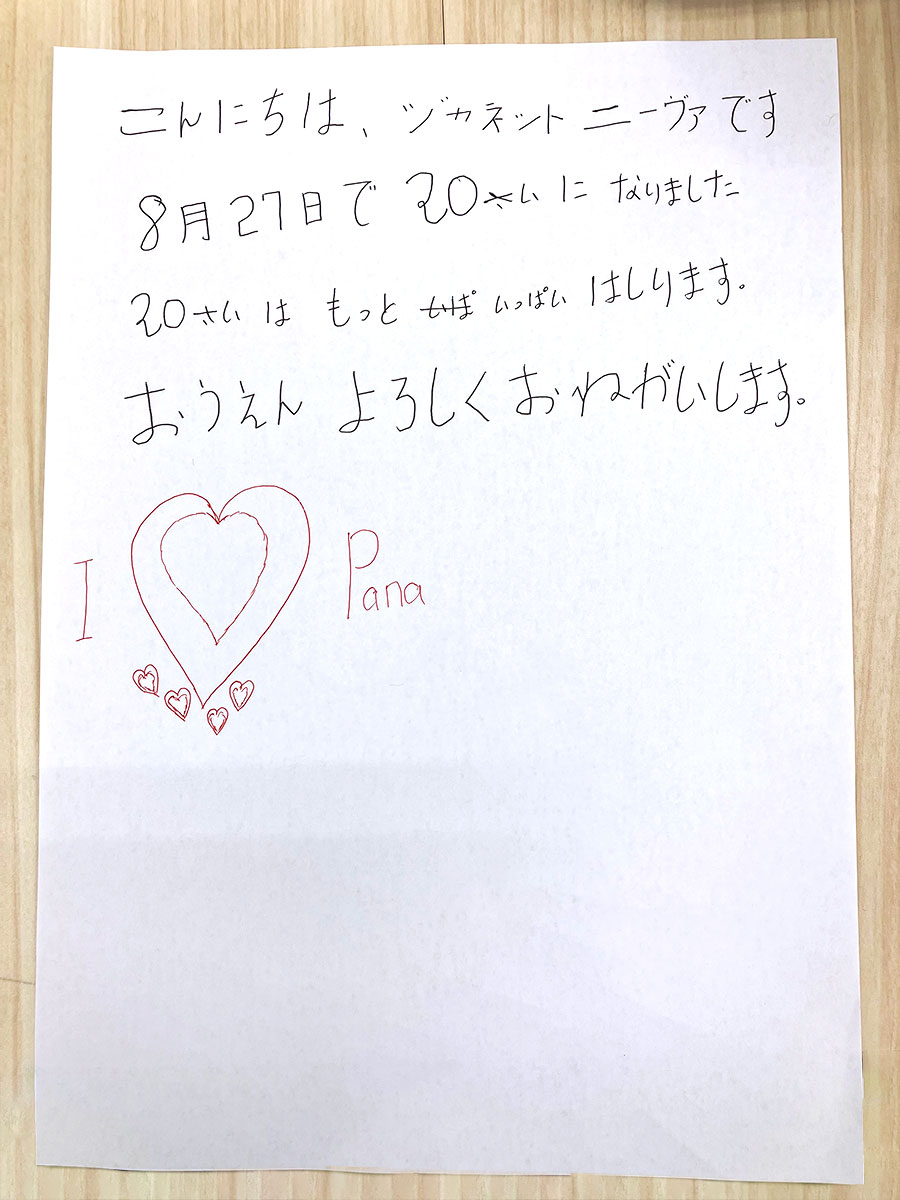 こんにちは、ジカネット ニーヴァです
8月27日で 20さいに なりました
20さいは もっと いっぱい はしります。
おうえん よろしくおねがいします。
I ♡ Pana